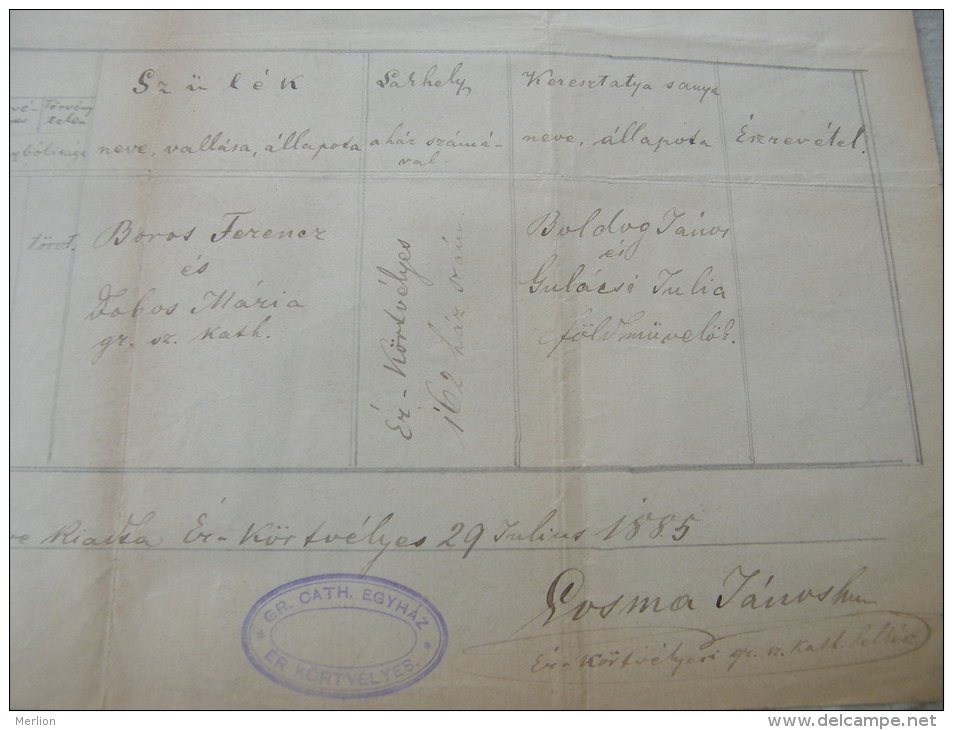 Szülék
Lakhely
Keresztatya s anya
Törvény
telen
neve, vallása, állapota
a ház számá-
val.
neve, állapota
Észrevétel.
törv.
Boros Ferencz
és
Dobos Mária
gr. sz. kath.
Ér-Körtvélyes
162 ház szám
Boldog János
és
Gulácsi Julia
földmüvelök.
Kiadta Ér-Körtvélyes 29 Julius 1885
GR. CATH. EGYHÁZ
ÉR KÖRTVÉLYES.
Cosma János
Ér-Körtvélyesi gr. sz. kath. lelkész
Merlion
www.delcampe.net